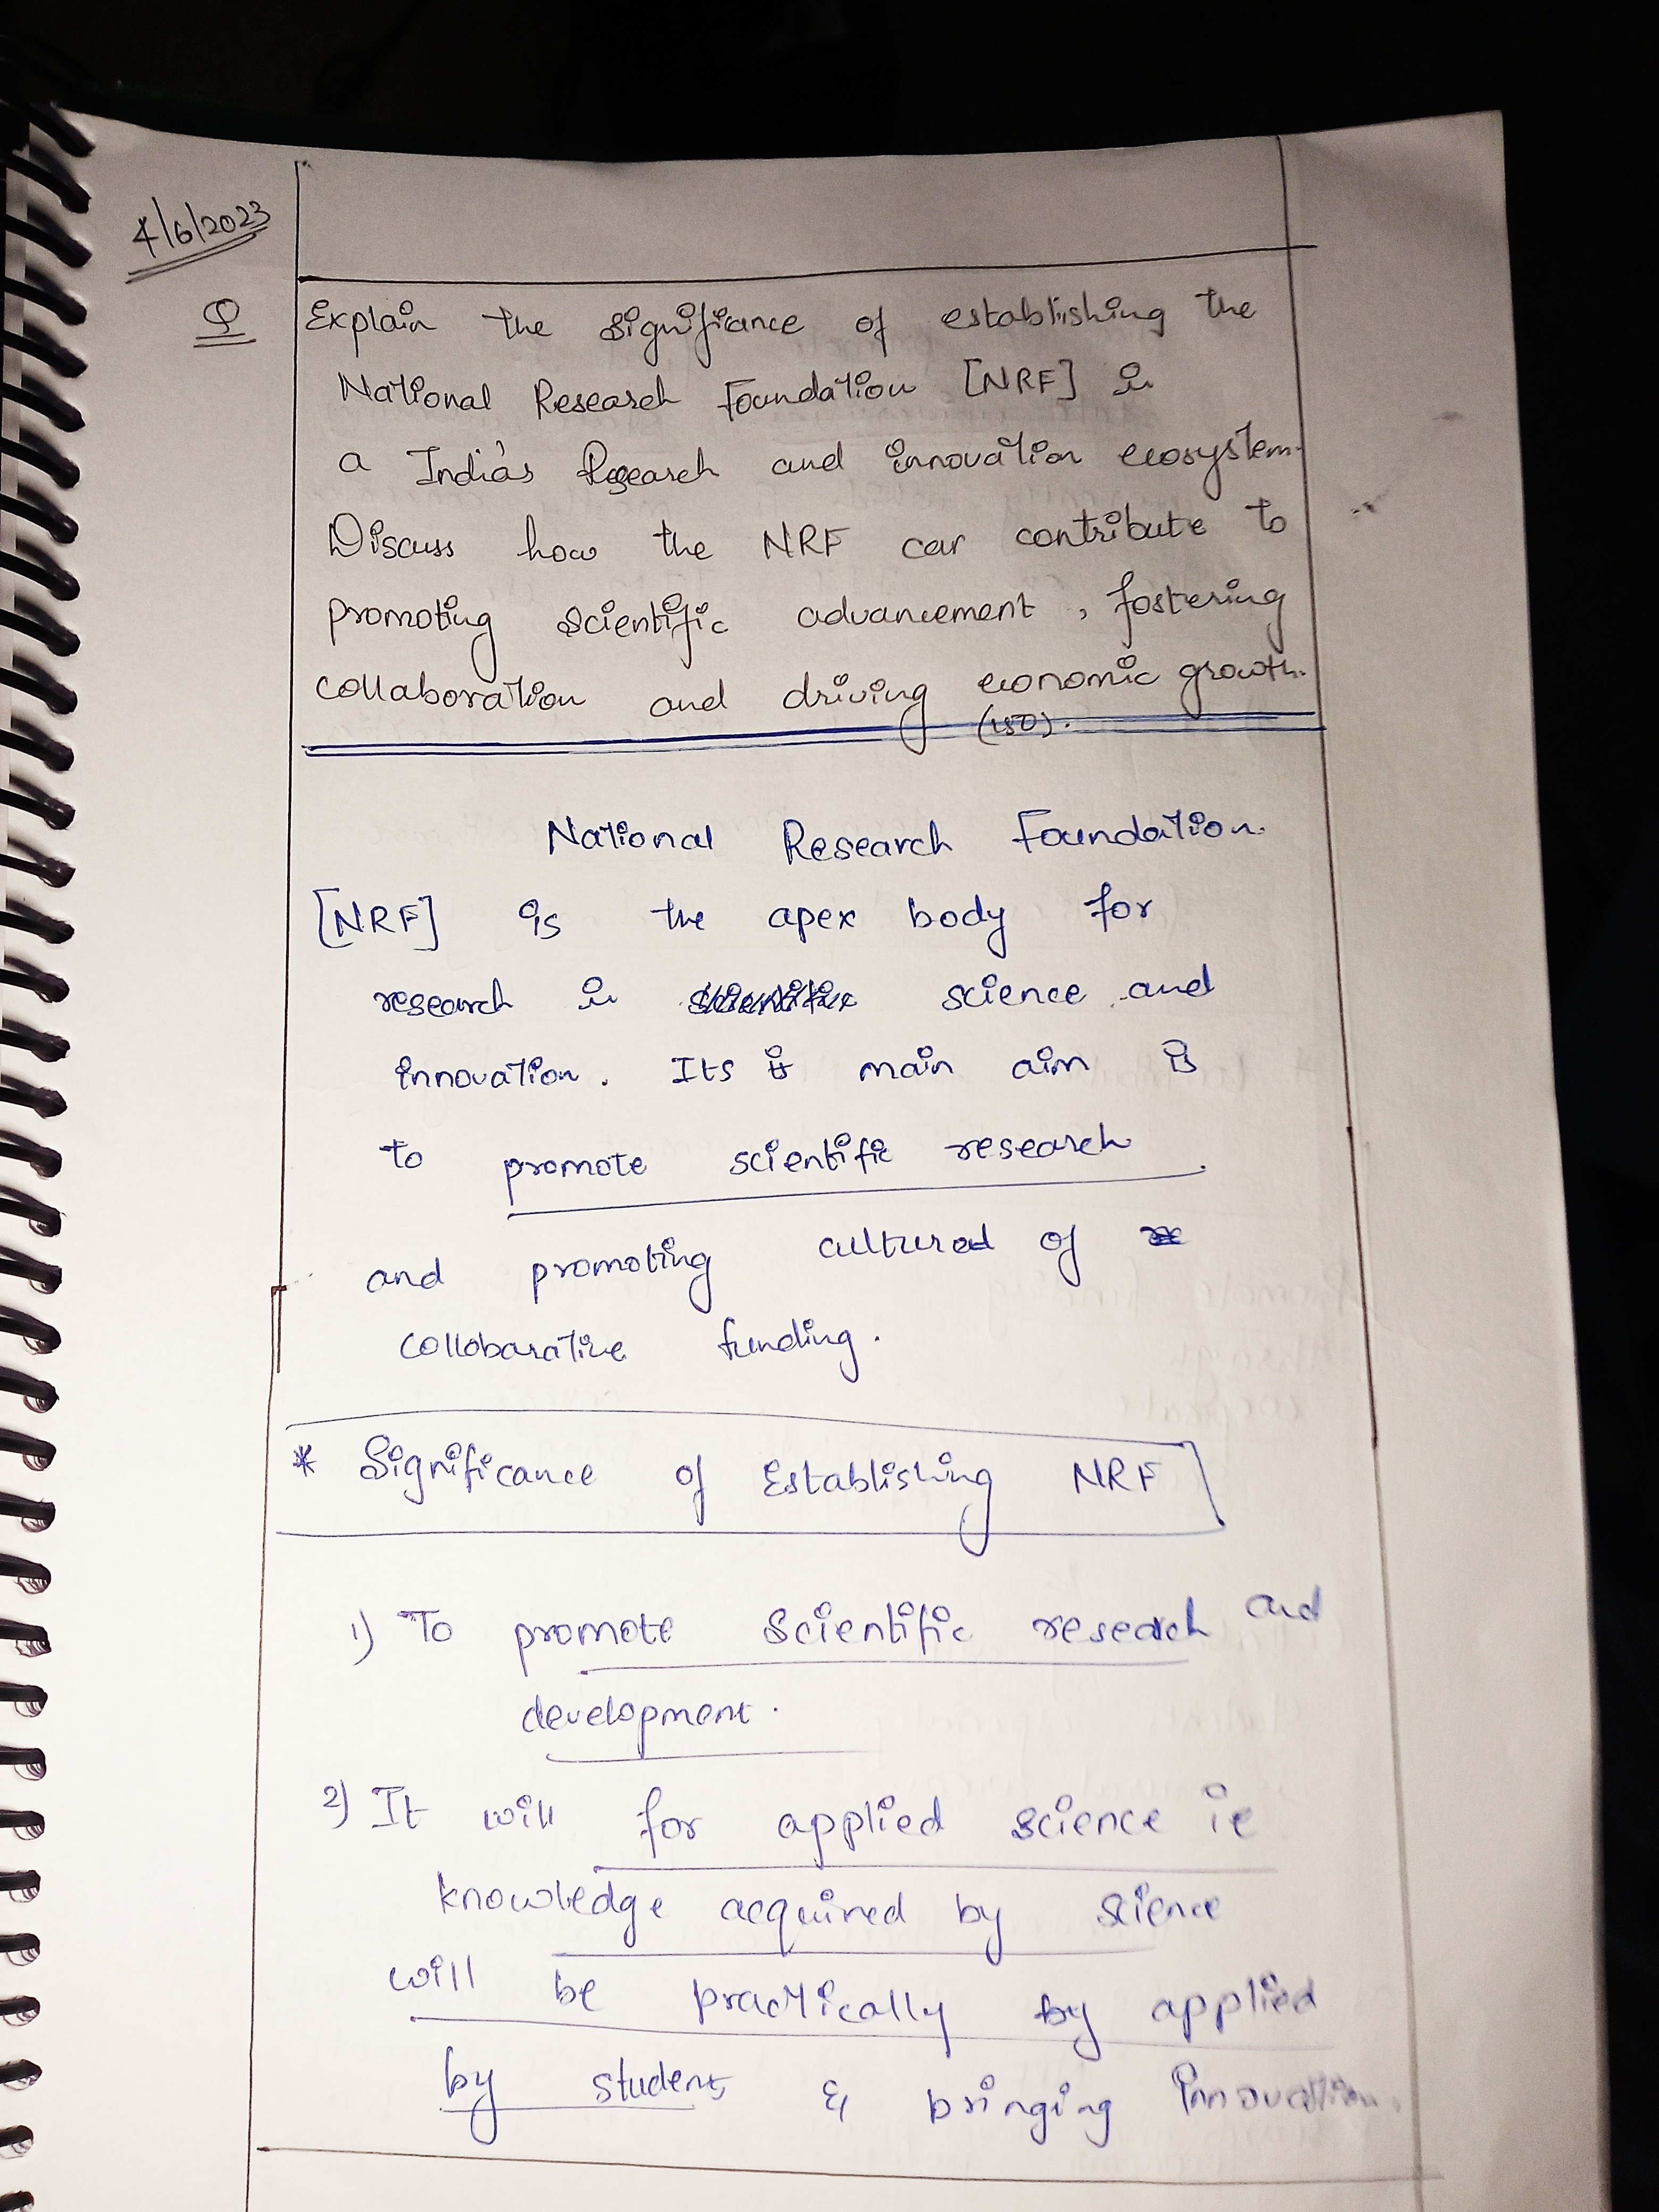 4/6/2023
Q
Explain the signifiance of establishing the
National Research Foundation [NRF] in
a India's Research and innovation ecosystem.
Discuss how the NRF can contribute to
promoting scientific advancement, fostering
collaboration and driving economic growth.
(150).
National Research Foundation.
[NRF] is the apex body for
research in science and
innovation. Its main aim is
to promote scientific research
and promoting cultured of
collobarative funding.
* Significance of Establishing NRF
1) To promote Scientific research and
development.
2) It will for applied science ie
knowledge acquired by science
will be practically by applied
by students & bringing innovation.